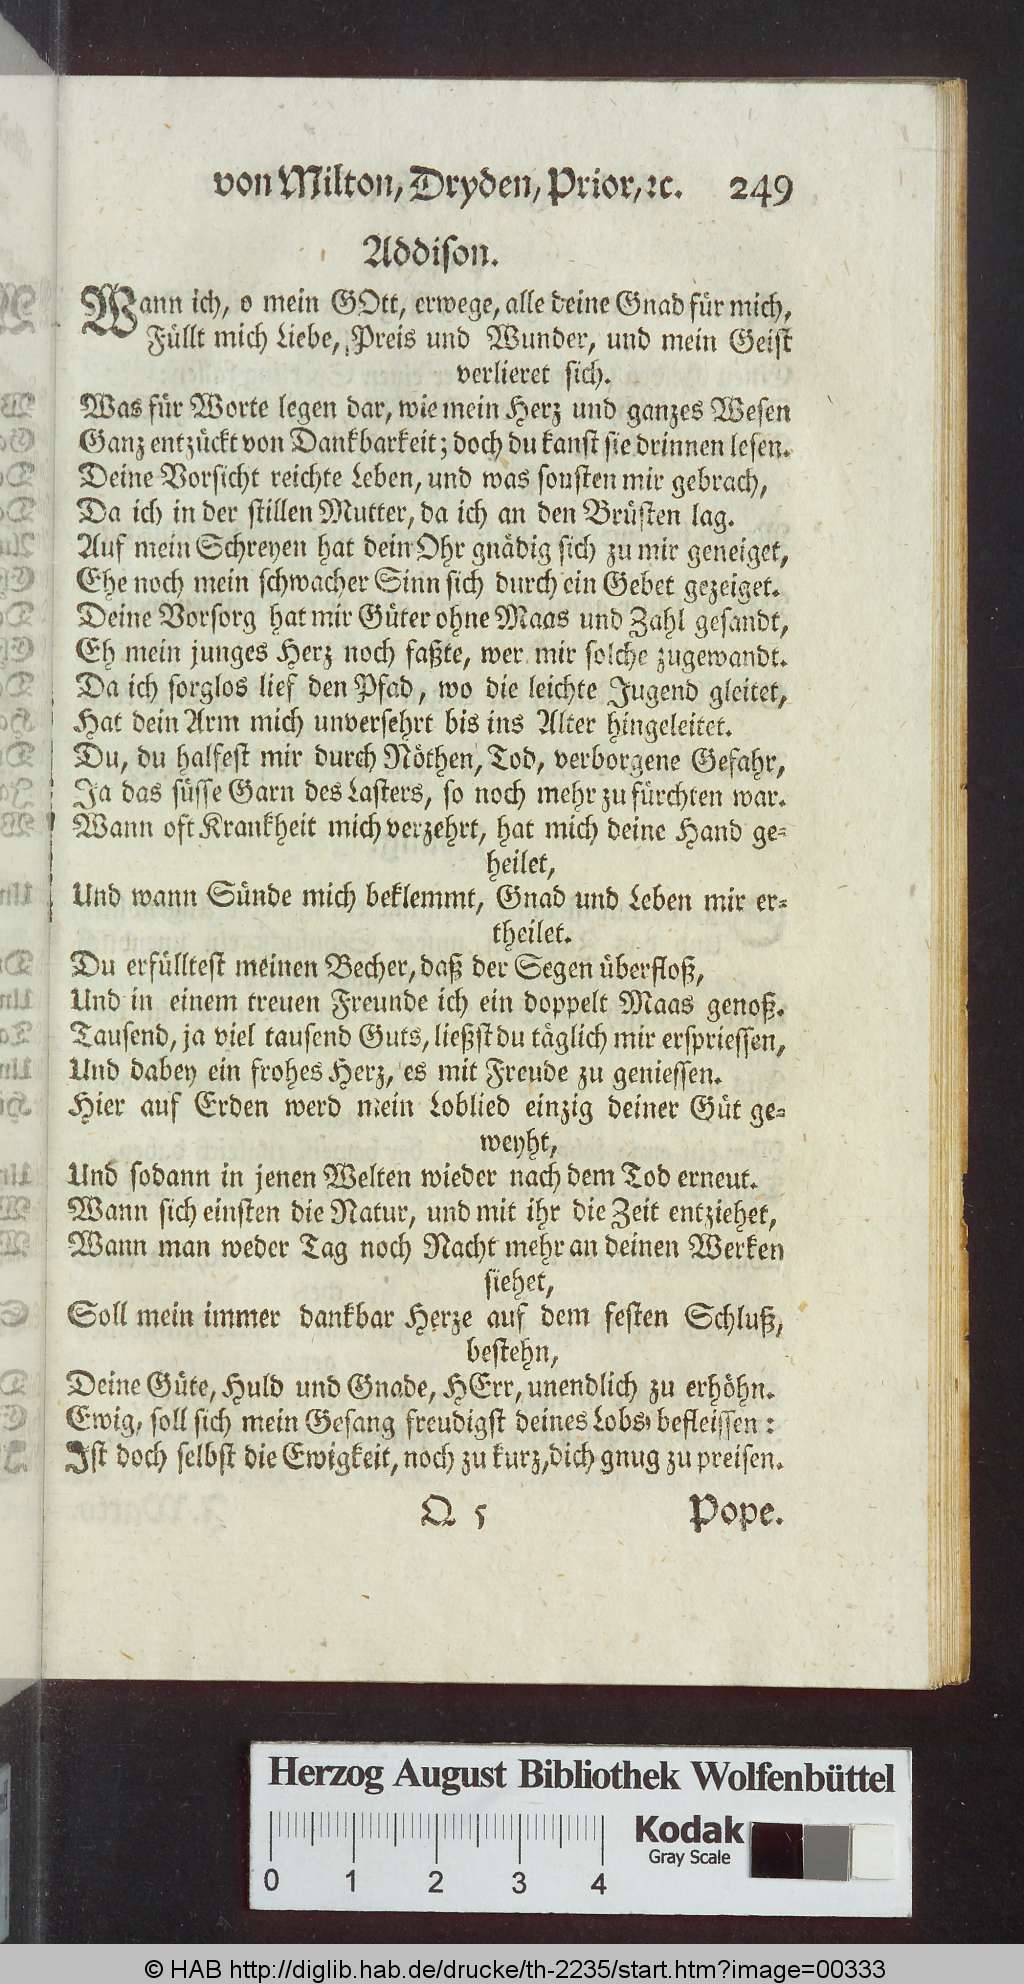 von Milton, Dryden, Prior, ꝛc. 249
Addison.
Wann ich, o mein GOtt, erwege, alle deine Gnad für mich,
Füllt mich Liebe, Preis und Wunder, und mein Geist
verlieret sich.
Was für Worte legen dar, wie mein Herz und ganzes Wesen
Ganz entzückt von Dankbarkeit; doch du kanst sie drinnen lesen.
Deine Vorsicht reichte Leben, und was sonsten mir gebrach,
Da ich in der stillen Mutter, da ich an den Brüsten lag.
Auf mein Schreyen hat dein Ohr gnädig sich zu mir geneiget,
Ehe noch mein schwacher Sinn sich durch ein Gebet gezeiget.
Deine Vorsorg hat mir Güter ohne Maas und Zahl gesandt,
Eh mein junges Herz noch faßte, wer mir solche zugewandt.
Da ich sorglos lief den Pfad, wo die leichte Jugend gleitet,
Hat dein Arm mich unversehrt bis ins Alter hingeleitet.
Du, du halfest mir durch Nöthen, Tod, verborgene Gefahr,
Ja das süsse Garn des Lasters, so noch mehr zu fürchten war.
Wann oft Krankheit mich verzehrt, hat mich deine Hand ge-
heilet,
Und wann Sünde mich beklemmt, Gnad und Leben mir er-
theilet.
Du erfülltest meinen Becher, daß der Segen überfloß,
Und in einem treuen Freunde ich ein doppelt Maas genoß.
Tausend, ja viel tausend Guts, ließst du täglich mir erspriessen,
Und dabey ein frohes Herz, es mit Freude zu geniessen.
Hier auf Erden werd mein Loblied einzig deiner Güt ge-
weyht,
Und sodann in jenen Welten wieder nach dem Tod erneut.
Wann sich einsten die Natur, und mit ihr die Zeit entziehet,
Wann man weder Tag noch Nacht mehr an deinen Werken
siehet,
Soll mein immer dankbar Herze auf dem festen Schluß,
bestehn,
Deine Güte, Huld und Gnade, HErr, unendlich zu erhöhn.
Ewig, soll sich mein Gesang freudigst deines Lobs, befleissen:
Ist doch selbst die Ewigkeit, noch zu kurz, dich gnug zu preisen.
Q 5 Pope.
Herzog August Bibliothek Wolfenbüttel
Kodak
Gray Scale
0 1 2 3 4
© HAB http://diglib.hab.de/drucke/th-2235/start.htm?image=00333